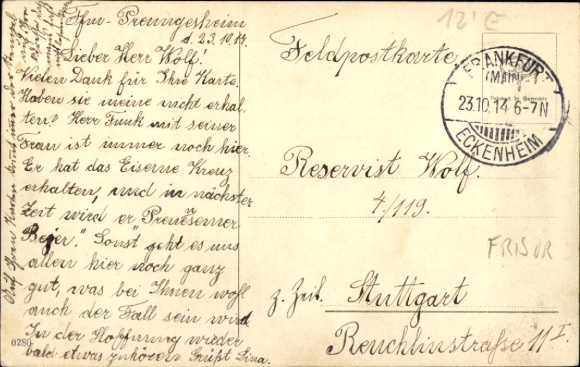 Ffm-Preungesheim
d. 23.10.14.
Lieber Herr Wolf!
Vielen Dank für Ihre Karte.
Haben sie meine nicht erhal-
ten? Herr Funk mit seiner
Frau ist immer noch hier.
Er hat das Eiserne Kreuz
erhalten, und in nächster
Zeit wird er
"Sonst geht es uns
allen hier noch ganz
gut, was bei Ihnen wohl
auch der Fall sein wird.
In der Hoffnung wieder
bald etwas zuhören Grüßt Lina.
Feldpostkarte
12' E
FRANKFURT
(MAIN)
23.10.14 6-7N
ECKENHEIM
Reservist Wolf.
4/119.
FRISUR
z. Zeit. Stuttgart
Reuchlinstraße 11 I.
0280